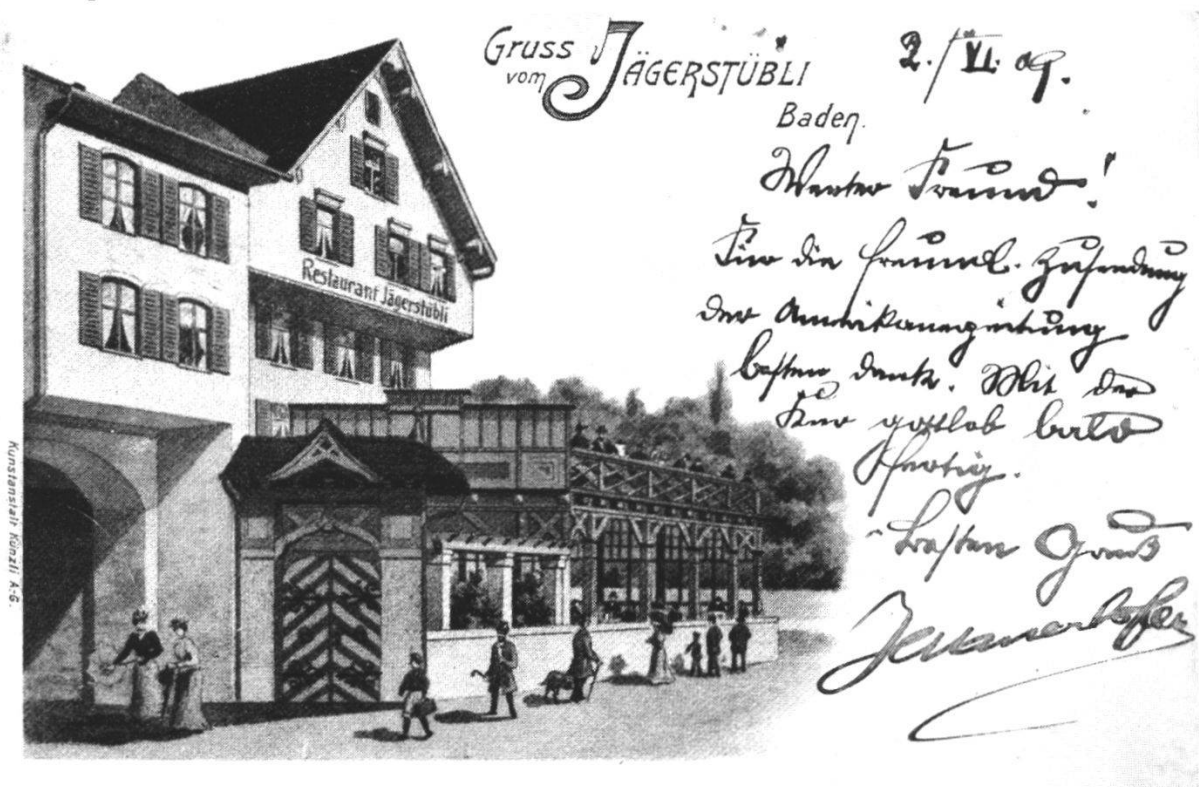 Gruss
vom JÄGERSTÜBLI
Baden.
2./VI. 09.
Werter Freund!
Für die freundl. Zusendung
der Amerikanerzeitung
besten Dank. Mit der
Kur gottlob bald
fertig.
Besten Gruß
Restaurant Jägerstübli
Kunstanstalt Künzli A-G.